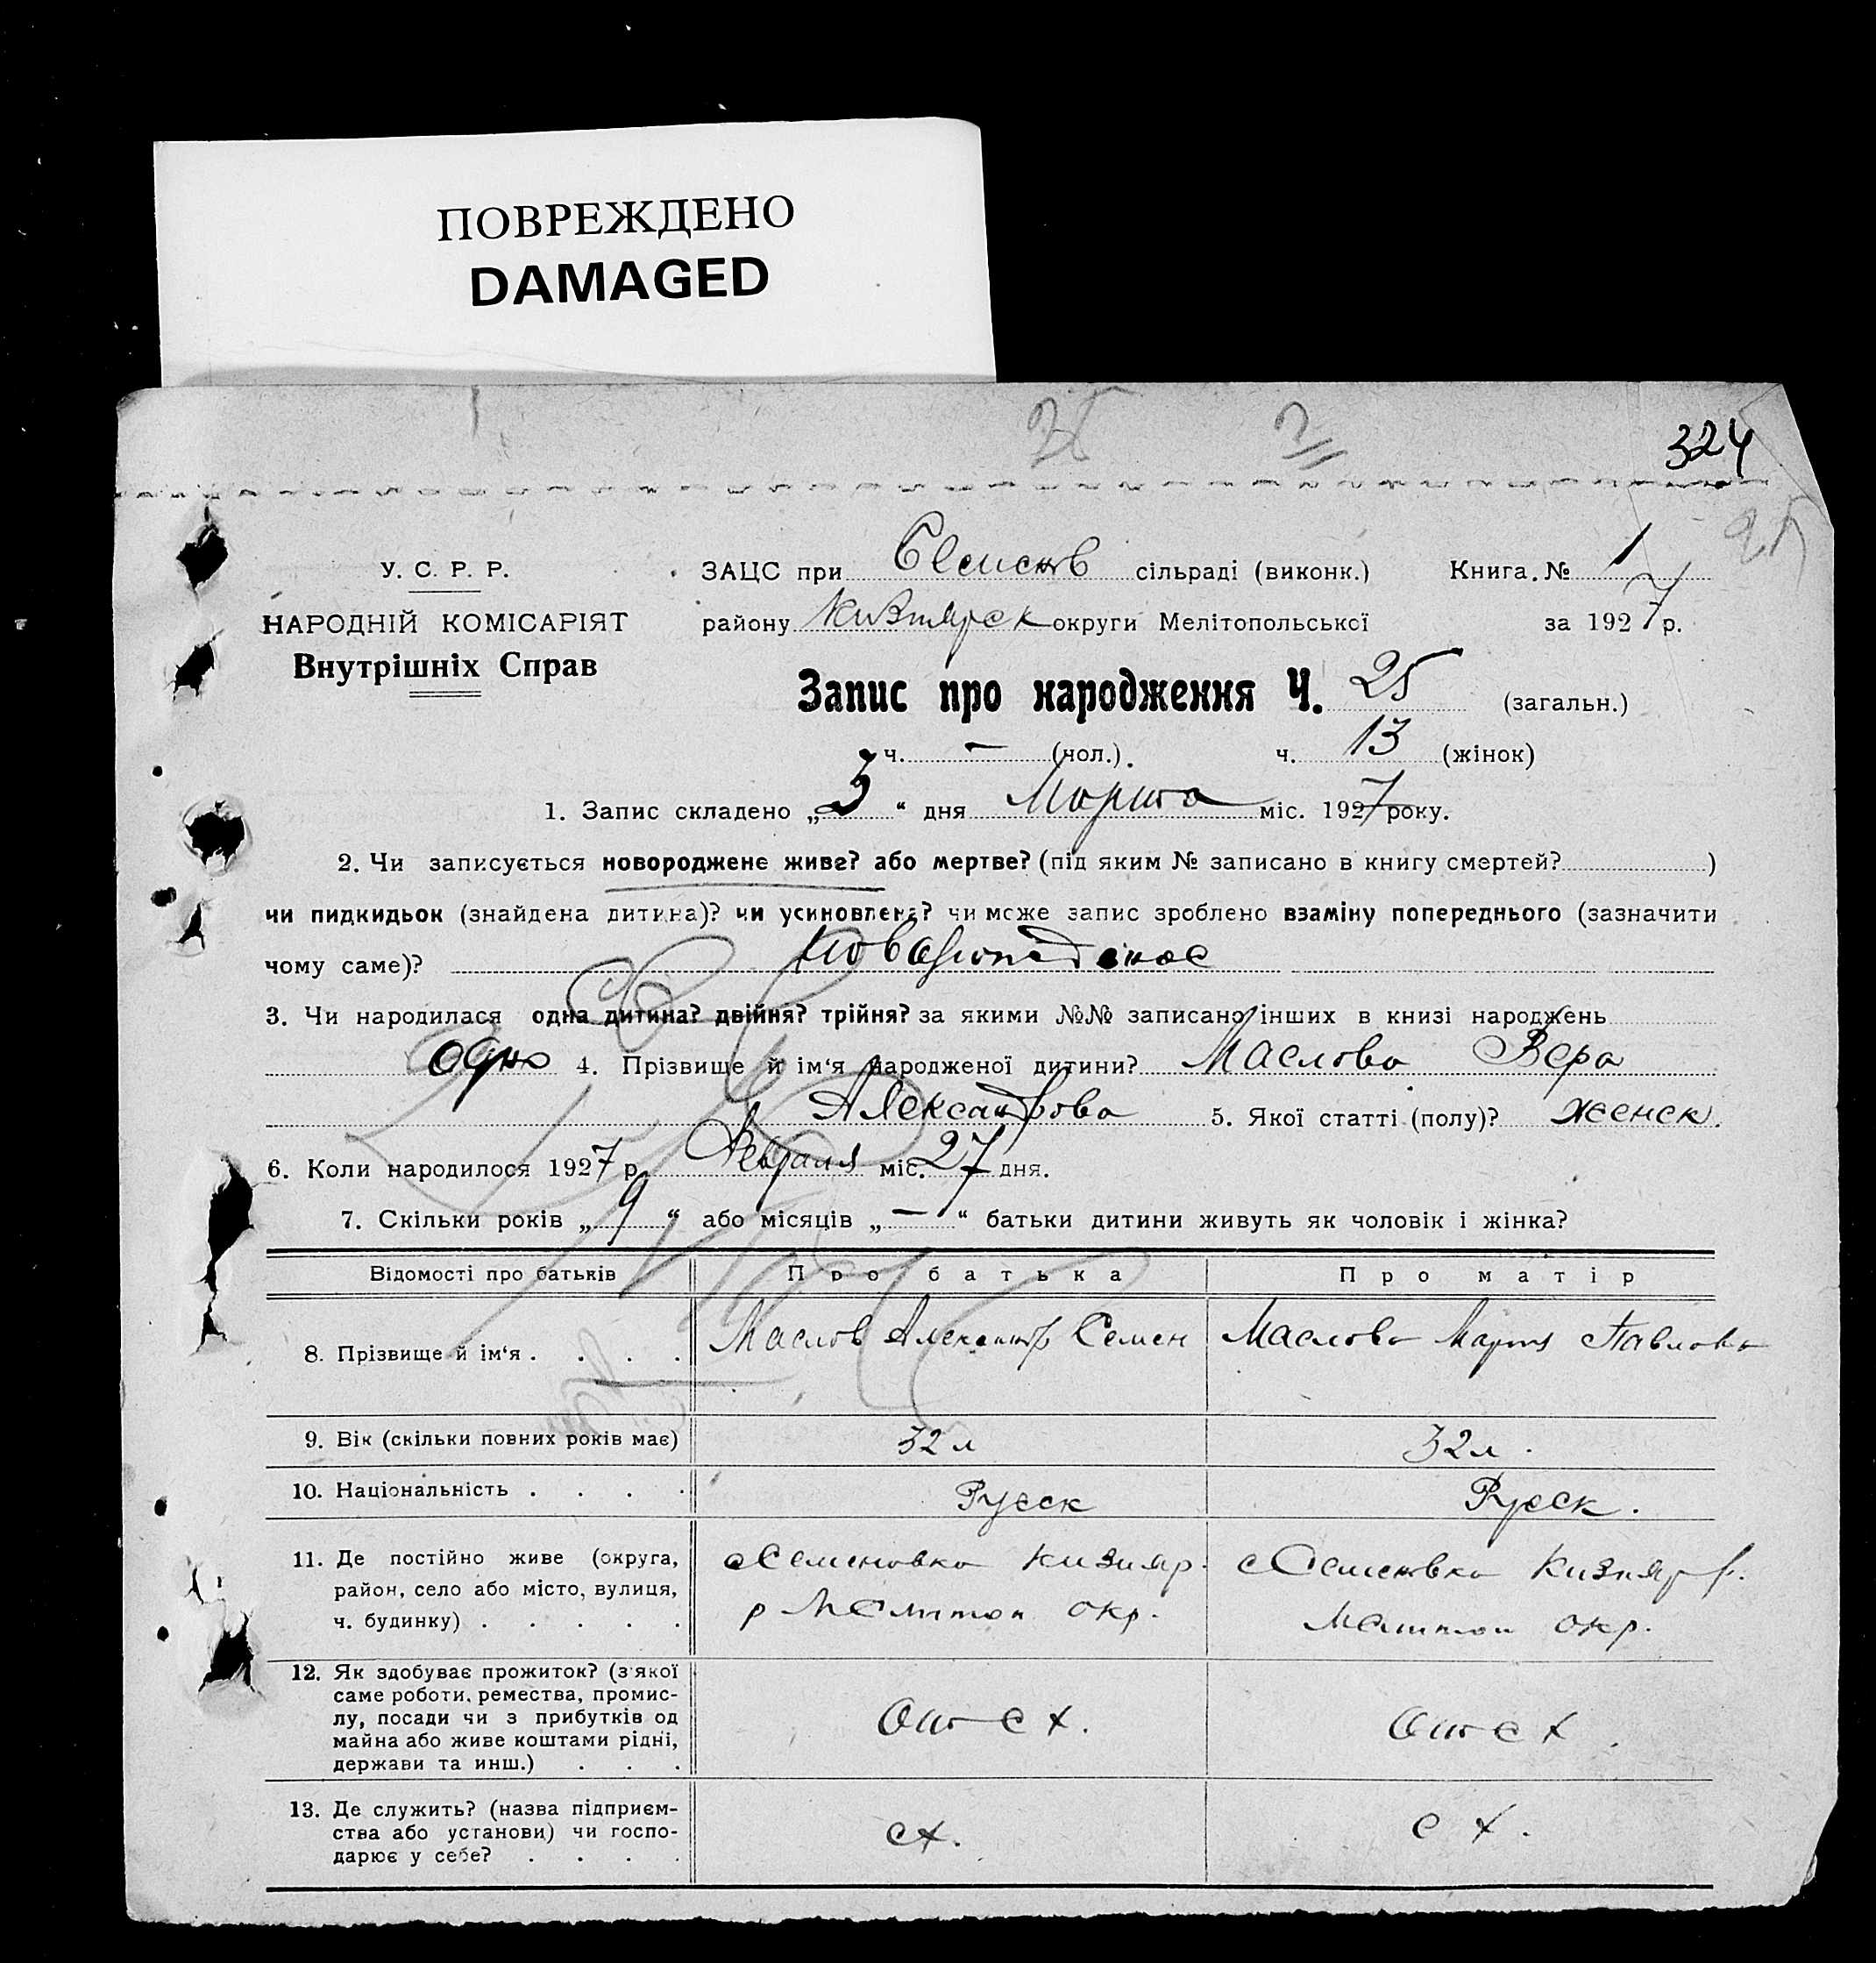 ПОВРЕЖДЕНО
DAMAGED
324
У. С. Р. Р.
НАРОДНІЙ КОМІСАРІЯТ
Внутрішніх Справ
ЗАЦС при Семенов сільраді (виконк.) Книга. № 1
району Кизиярск округи Мелітопольської за 1927 р.
Запис про народження Ч. 25 (загальн.)
ч. — (чол.). ч. 13 (жінок)
1. Запис складено „3“ дня Марта міс. 1927 року.
2. Чи записується новороджене живе? або мертве? (під яким № записано в книгу смертей? )
чи пидкидьок (знайдена дитина)? чи усиновлена? чи може запис зроблено взаміну попереднього (зазначити
чому саме)?
3. Чи народилася одна дитина? двійня? трійня? за якими №№ записано інших в книзі народжень
одно 4. Прізвище й ім‘я народженої дитини? Маслова Вера
Александрова 5. Якої статті (полу)? женск.
6. Коли народилося 1927 р. Февраля міс. 27 дня.
7. Скільки років „9“ або місяців „—“ батьки дитини живуть як чоловік і жінка?
Відомості про батьків Про батька Про матір
8. Прізвище й ім‘я . . . . Маслов Александр Семен Маслова Мария Павлова
9. Вік (скільки повних років має) 32 л 32 л.
10. Національність . . . . Русск Русск.
11. Де постійно живе (округа, с Семеновка Кизияр. с Семеновка Кизияр р.
район, село або місто, вулиця, р Мелитоп окр. Мелитоп окр.
ч. будинку) . . . . .
12. Як здобуває прожиток? (з якої
саме роботи, ремества, промис-
лу, посади чи з прибутків од От с х. От с х
майна або живе коштами рідні,
держави та инш.) . . .
13. Де служить? (назва підприєм-
ства або установи) чи госпо- с х. с х.
дарює у себе? . . . .